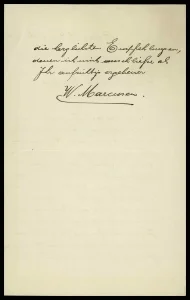 die herzlichsten Empfehlungen,
denen ich mich anschließe als
Ihr aufrichtig ergebener
W. Marcusen